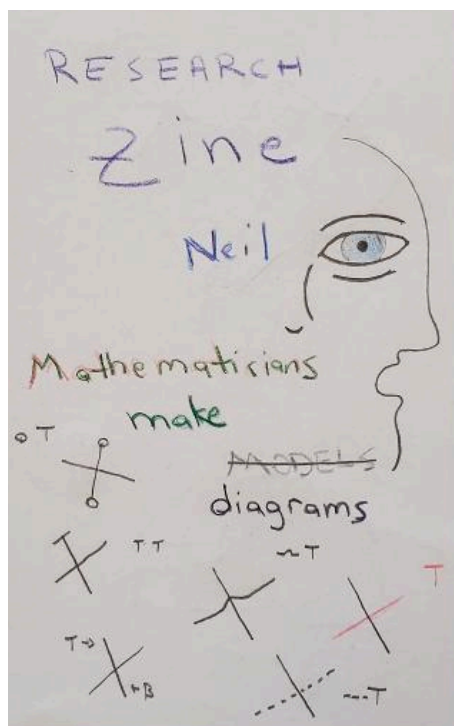 RESEARCH
Zine
Neil
Mathematisians
make
MODELS
diagrams
o T
T T
~ T
T
T →
← B
---T